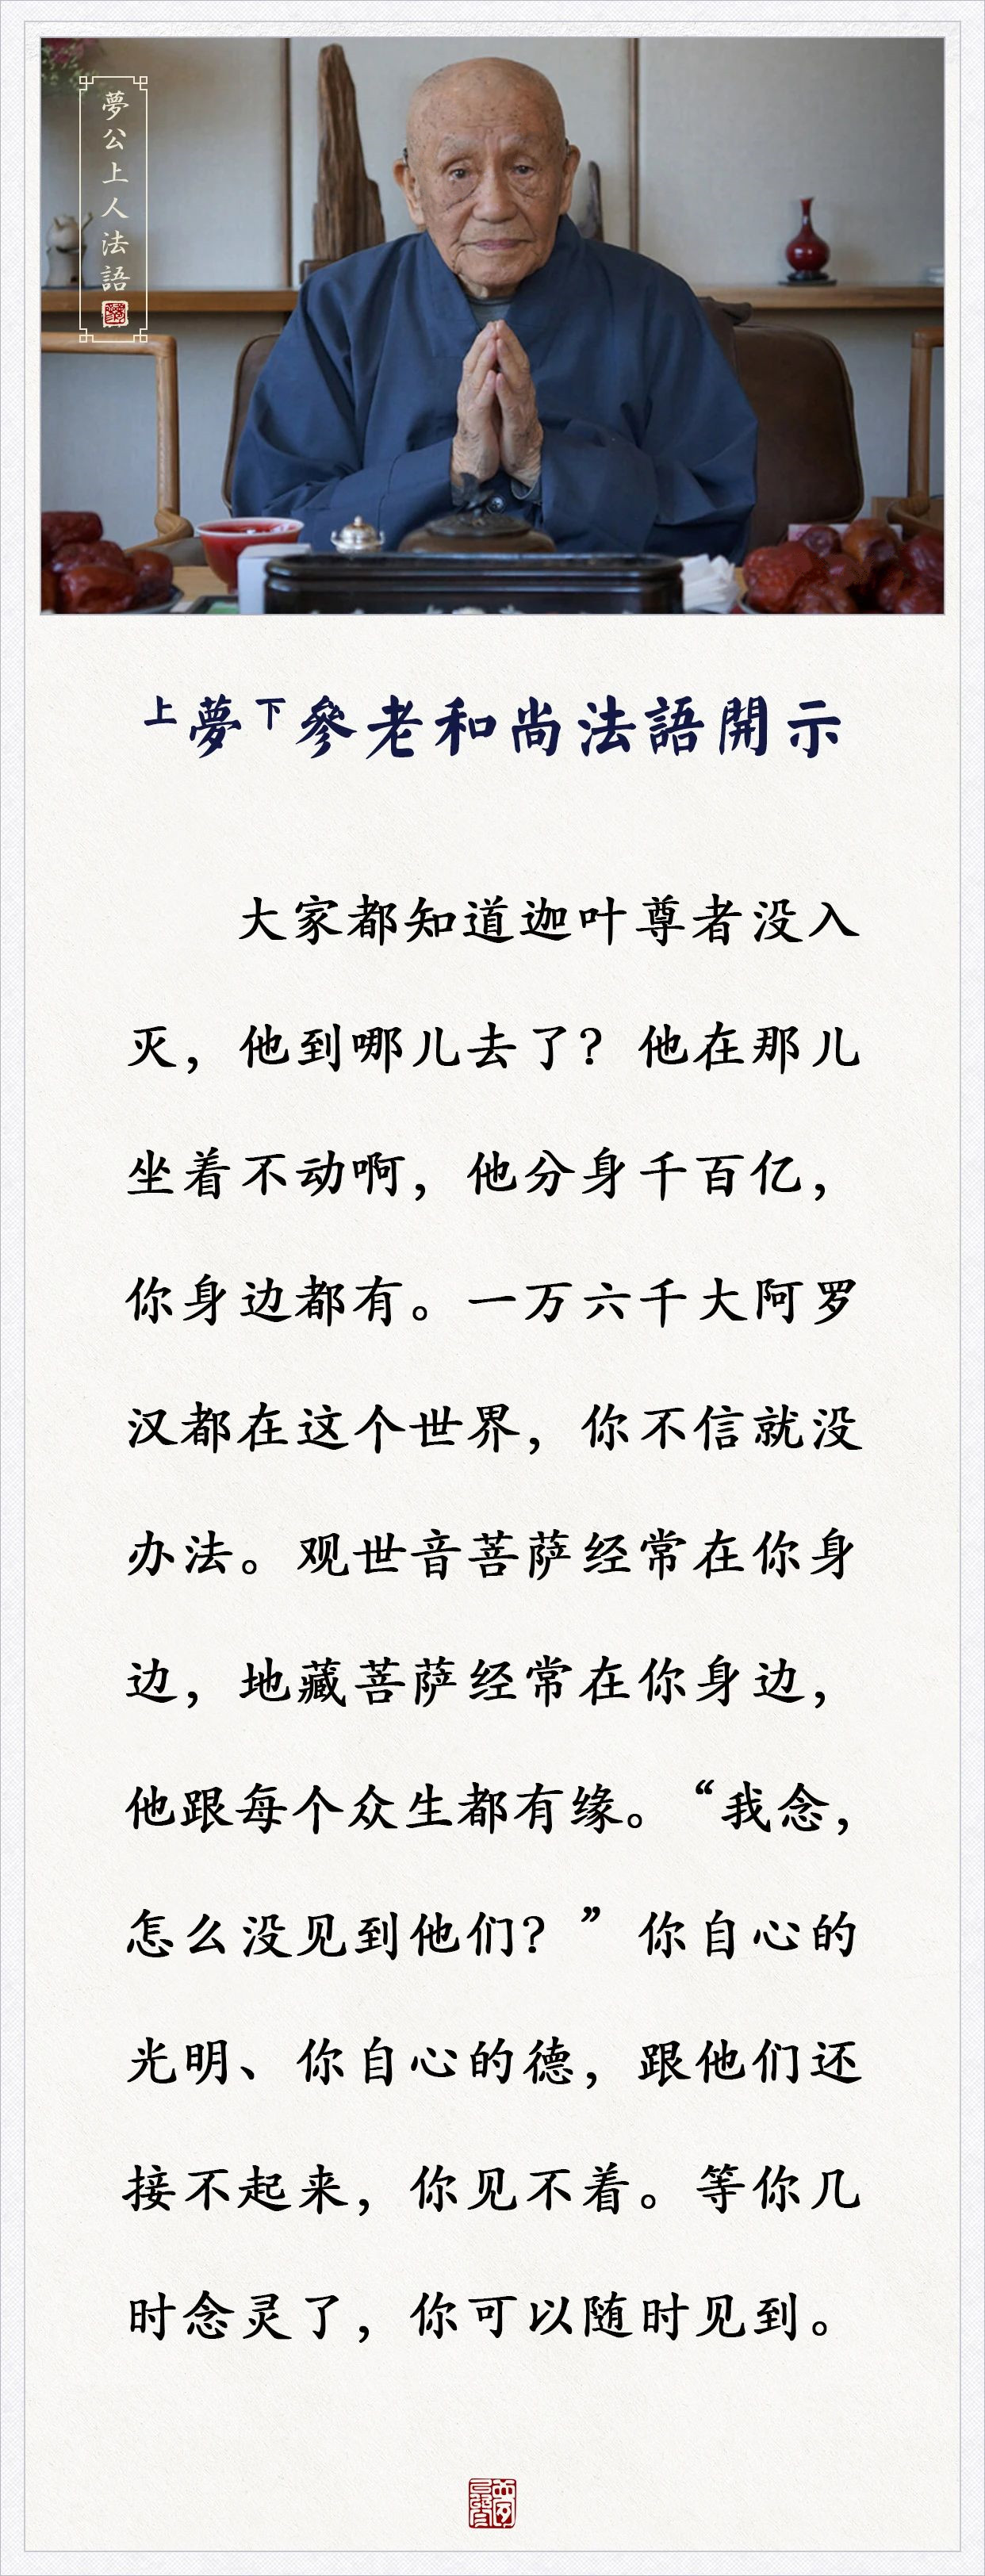 夢公上人法語
上夢下參老和尚法語開示
大家都知道迦叶尊者没入
灭，他到哪儿去了？他在那儿
坐着不动啊，他分身千百亿，
你身边都有。一万六千大阿罗
汉都在这个世界，你不信就没
办法。观世音菩萨经常在你身
边，地藏菩萨经常在你身边，
他跟每个众生都有缘。“我念，
怎么没见到他们？”你自心的
光明、你自心的德，跟他们还
接不起来，你见不着。等你几
时念灵了，你可以随时见到。